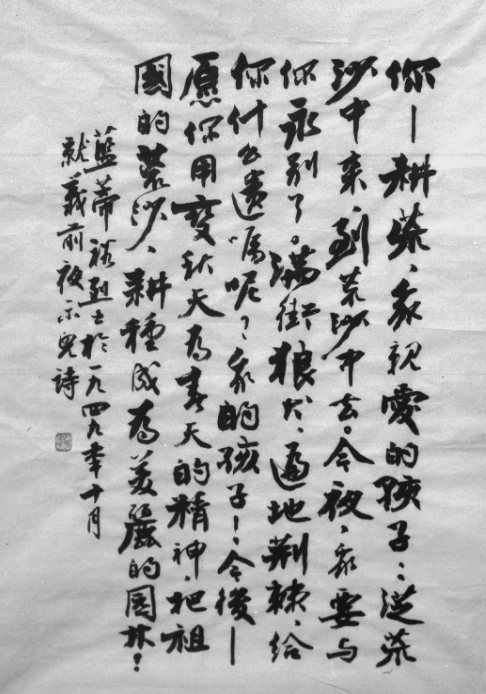 你—耕荒、我親愛的孩子：從荒
沙中來，到荒沙中去。今夜，我要与
你永别了。滿街狼犬，遍地荆棘，给
你什么遺嘱呢？我的孩子！今後—
愿你用变秋天为春天的精神，把祖
國的荒沙，耕種成为美麗的園林！
藍蒂裕烈士於一九四九年十月
就義前夜示兒詩